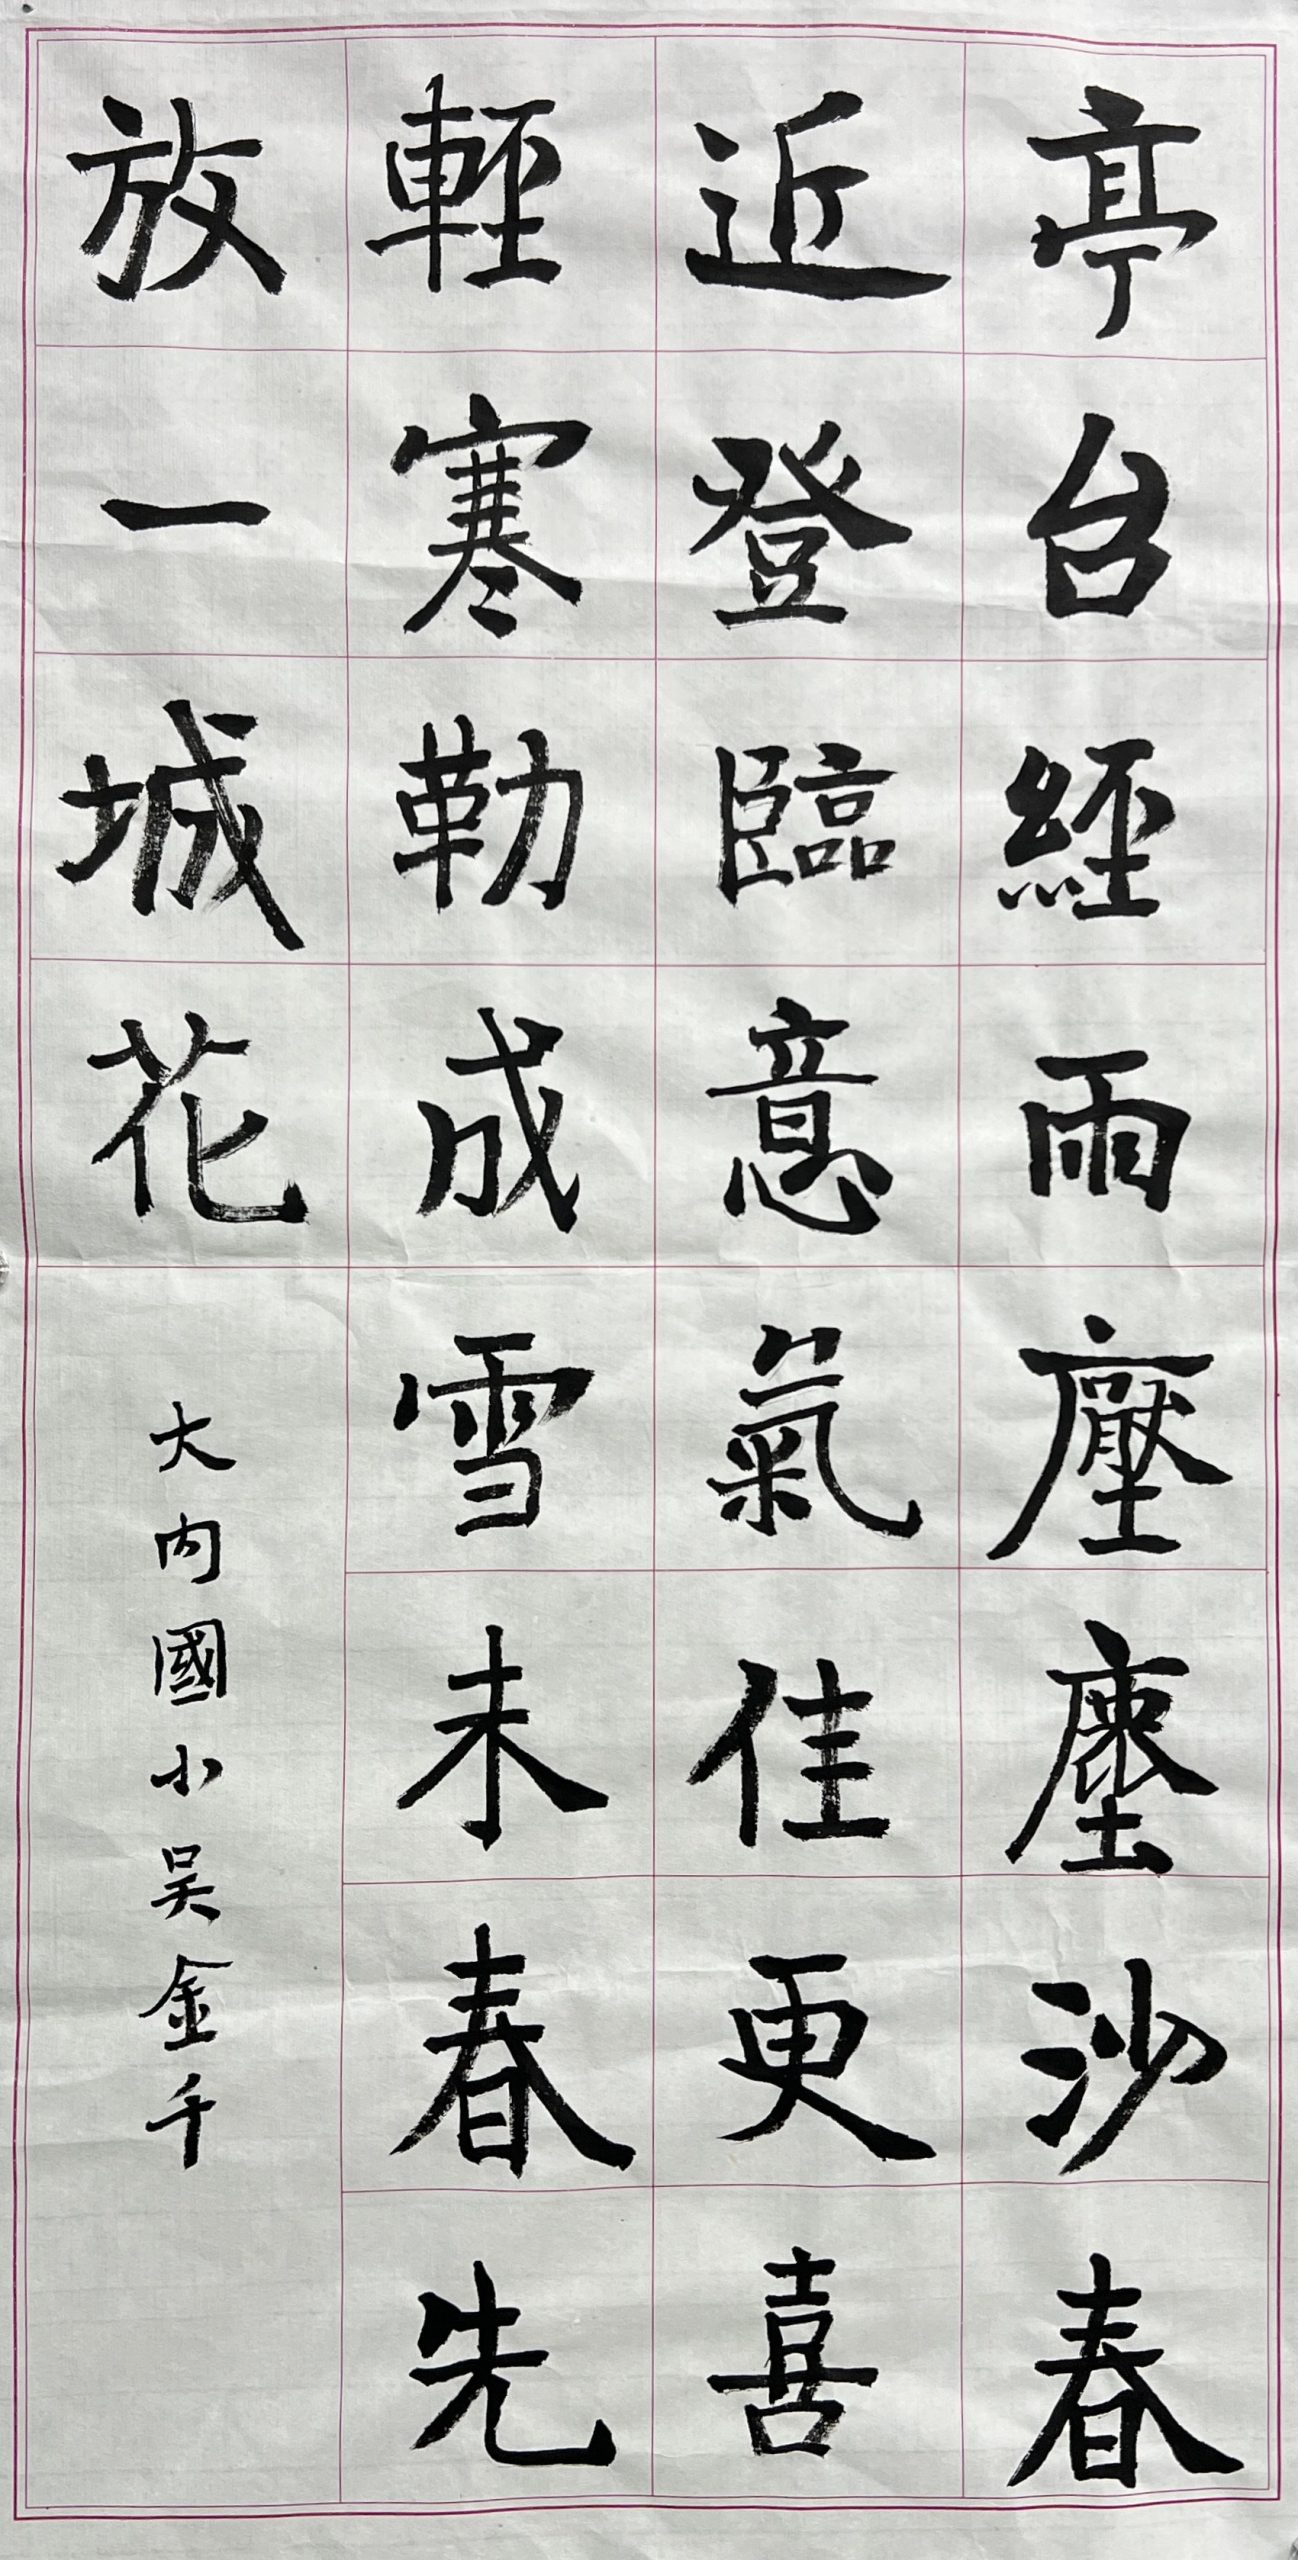 亭台經雨壓塵沙春
近登臨意氣佳更喜
輕寒勒成雪未春先
放一城花
大內國小吴金千